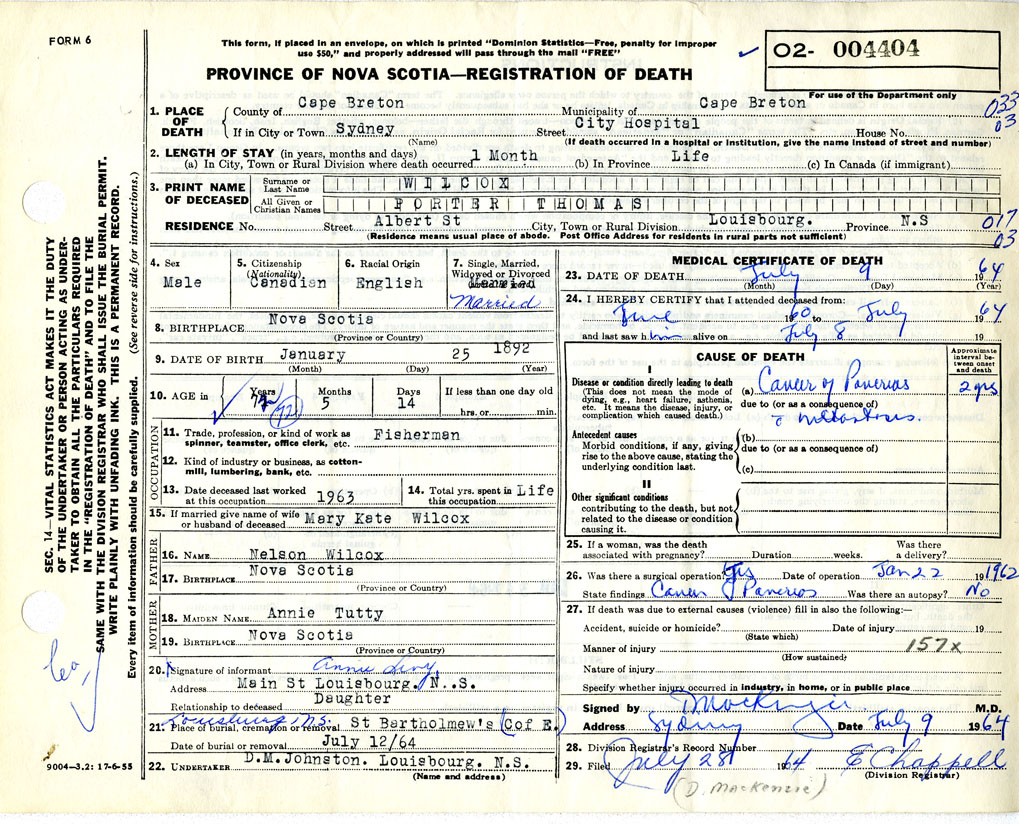 FORM 6
This form, if placed in an envelope, on which is printed "Dominion Statistics—Free, penalty for improper
use $50," and properly addressed will pass through the mail "FREE"
✓ O2- 004404
PROVINCE OF NOVA SCOTIA—REGISTRATION OF DEATH
For use of the Department only
033
03
1. PLACE OF DEATH
County of Cape Breton Municipality of Cape Breton
If in City or Town Sydney Street City Hospital House No.
(Name) (If death occurred in a hospital or institution, give the name instead of street and number)
2. LENGTH OF STAY (in years, months and days)
(a) In City, Town or Rural Division where death occurred 1 Month (b) In Province Life (c) In Canada (if immigrant)
3. PRINT NAME OF DECEASED
Surname or Last Name WILCOX
All Given or Christian Names PORTER THOMAS
RESIDENCE No. Street Albert St City, Town or Rural Division Louisbourg. Province N.S
(Residence means usual place of abode. Post Office Address for residents in rural parts not sufficient)
017
03
4. Sex
Male
5. Citizenship
(Nationality)
Canadian
6. Racial Origin
English
7. Single, Married,
Widowed or Divorced
Married
8. BIRTHPLACE Nova Scotia
(Province or Country)
9. DATE OF BIRTH January 25 1892
(Month) (Day) (Year)
10. AGE in
Years Months Days If less than one day old
72 5 14 hrs. or min.
OCCUPATION
11. Trade, profession, or kind of work as
spinner, teamster, office clerk, etc. Fisherman
12. Kind of industry or business, as cotton-
mill, lumbering, bank, etc.
13. Date deceased last worked
at this occupation 1963
14. Total yrs. spent in
this occupation Life
15. If married give name of wife
or husband of deceased Mary Kate Wilcox
FATHER
16. NAME Nelson Wilcox
17. BIRTHPLACE Nova Scotia
(Province or Country)
MOTHER
18. MAIDEN NAME Annie Tutty
19. BIRTHPLACE Nova Scotia
(Province or Country)
20. Signature of informant Annie Levy
Address Main St Louisbourg. N..S.
Relationship to deceased Daughter
Louisburg N.S.
21. Place of burial, cremation or removal St Bartholmew's (Cof E.)
Date of burial or removal July 12/64
22. UNDERTAKER D.M.Johnston. Louisbourg. N.S.
(Name and address)
MEDICAL CERTIFICATE OF DEATH
23. DATE OF DEATH July 9 64
(Month) (Day) (Year)
24. I HEREBY CERTIFY that I attended deceased from:
June 1960 to July 1964
and last saw him alive on July 8
CAUSE OF DEATH
Approximate
interval be-
tween onset
and death
I
Disease or condition directly leading to death
(This does not mean the mode of
dying, e.g., heart failure, asthenia,
etc. It means the disease, injury, or
complication which caused death.)
(a) Cancer of Pancreas 2 yrs
due to (or as a consequence of)
c metastases.
Antecedent causes
Morbid conditions, if any, giving
rise to the above cause, stating the
underlying condition last.
(b)
due to (or as a consequence of)
(c)
II
Other significant conditions
contributing to the death, but not
related to the disease or condition
causing it.
25. If a woman, was the death Was there
associated with pregnancy? Duration weeks. a delivery?
26. Was there a surgical operation? Yes Date of operation Jan 22 19 1962
State findings Cancer of Pancreas Was there an autopsy? No
27. If death was due to external causes (violence) fill in also the following:—
Accident, suicide or homicide? Date of injury 19
(State which)
Manner of injury 157x
(How sustained)
Nature of injury
Specify whether injury occurred in industry, in home, or in public place
Signed by D Mackenzie M.D.
Address Sydney Date July 9 1964
28. Division Registrar's Record Number
29. Filed July 28 1964 E Chappell
(Division Registrar)
(D. MacKenzie)
SEC. 14—VITAL STATISTICS ACT MAKES IT THE DUTY
OF THE UNDERTAKER OR PERSON ACTING AS UNDER-
TAKER TO OBTAIN ALL THE PARTICULARS REQUIRED
IN THE "REGISTRATION OF DEATH" AND TO FILE THE
SAME WITH THE DIVISION REGISTRAR WHO SHALL ISSUE THE BURIAL PERMIT.
WRITE PLAINLY WITH UNFADING INK. THIS IS A PERMANENT RECORD.
Every item of information should be carefully supplied. (See reverse side for instructions.)
9004—3.2: 17-6-55